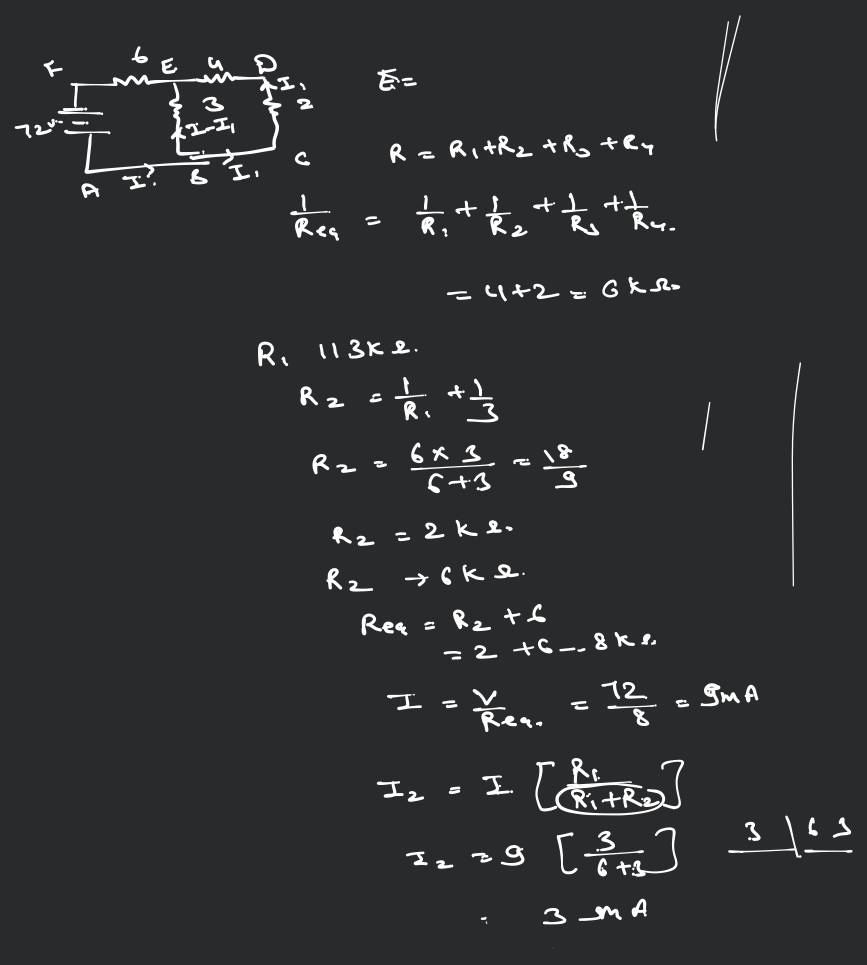 F 6 E 4 D
I₁
72V 3 2
I-I₁
A I B I₁ C
E =
R = R₁+R₂ +R₃ +R₄
1/Req = 1/R₁ + 1/R₂ + 1/R₃ + 1/R₄.
= 4+2 = 6kΩ
R₁ || 3kΩ.
R₂ = 1/R₁ + 1/3
R₂ = 6×3/6+3 = 18/9
R₂ = 2kΩ.
R₂ → 6kΩ.
Req = R₂ +6
= 2 +6 -- 8kΩ.
I = V/Req. = 72/8 = 9mA
I₂ = I. [R₁/R₁+R₂]
I₂ = 9 [3/6+3]
: 3 mA